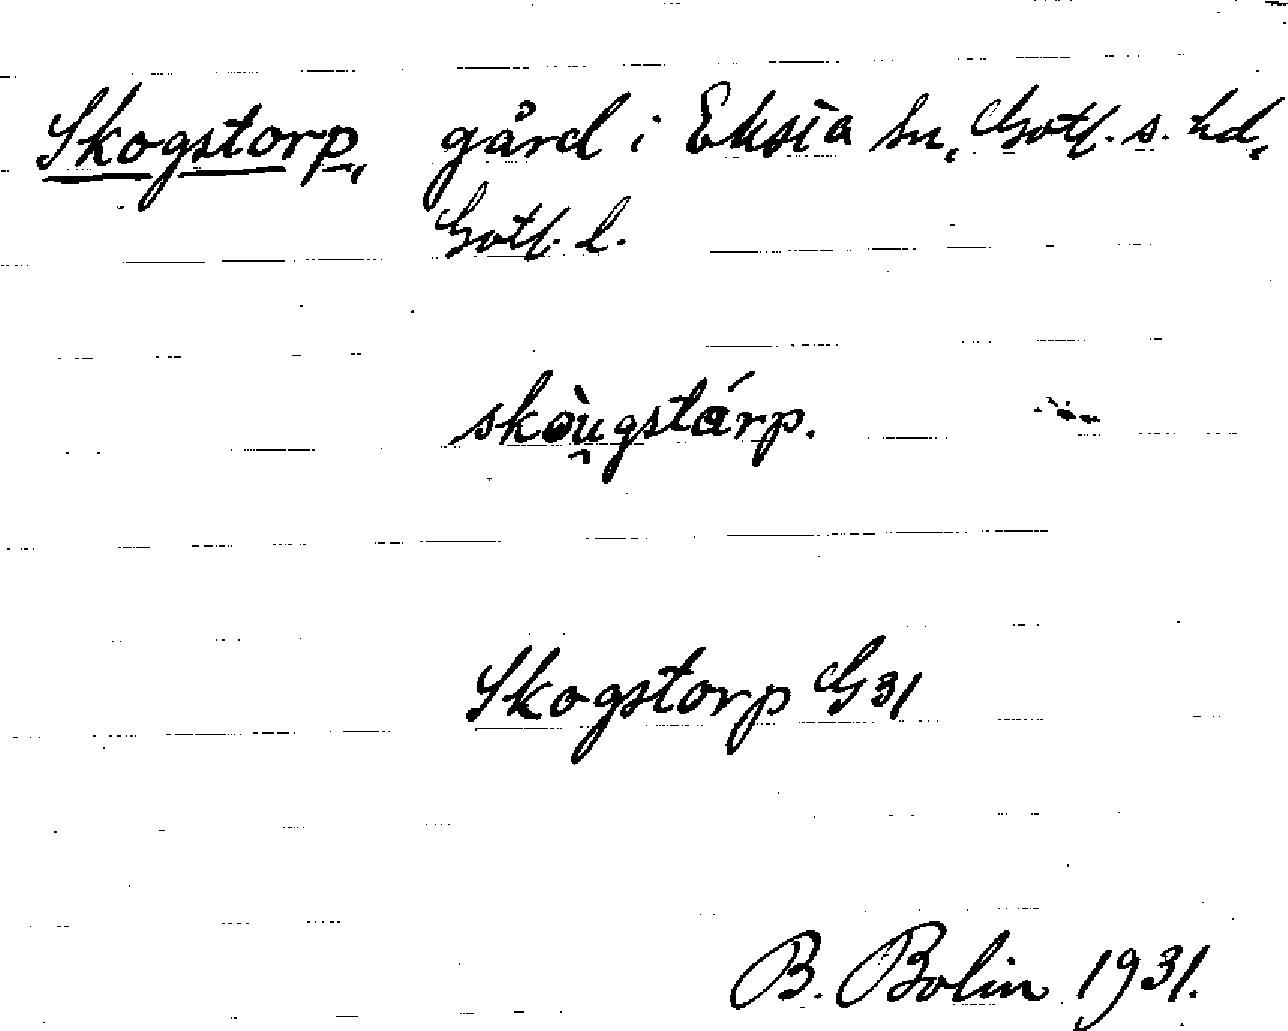 Skogstorp, gård i Eksta sn, Gotl. s. hd,
Gotl. l.
skòu̯gstárp.
Skogstorp G 31
B. Bolin 1931.